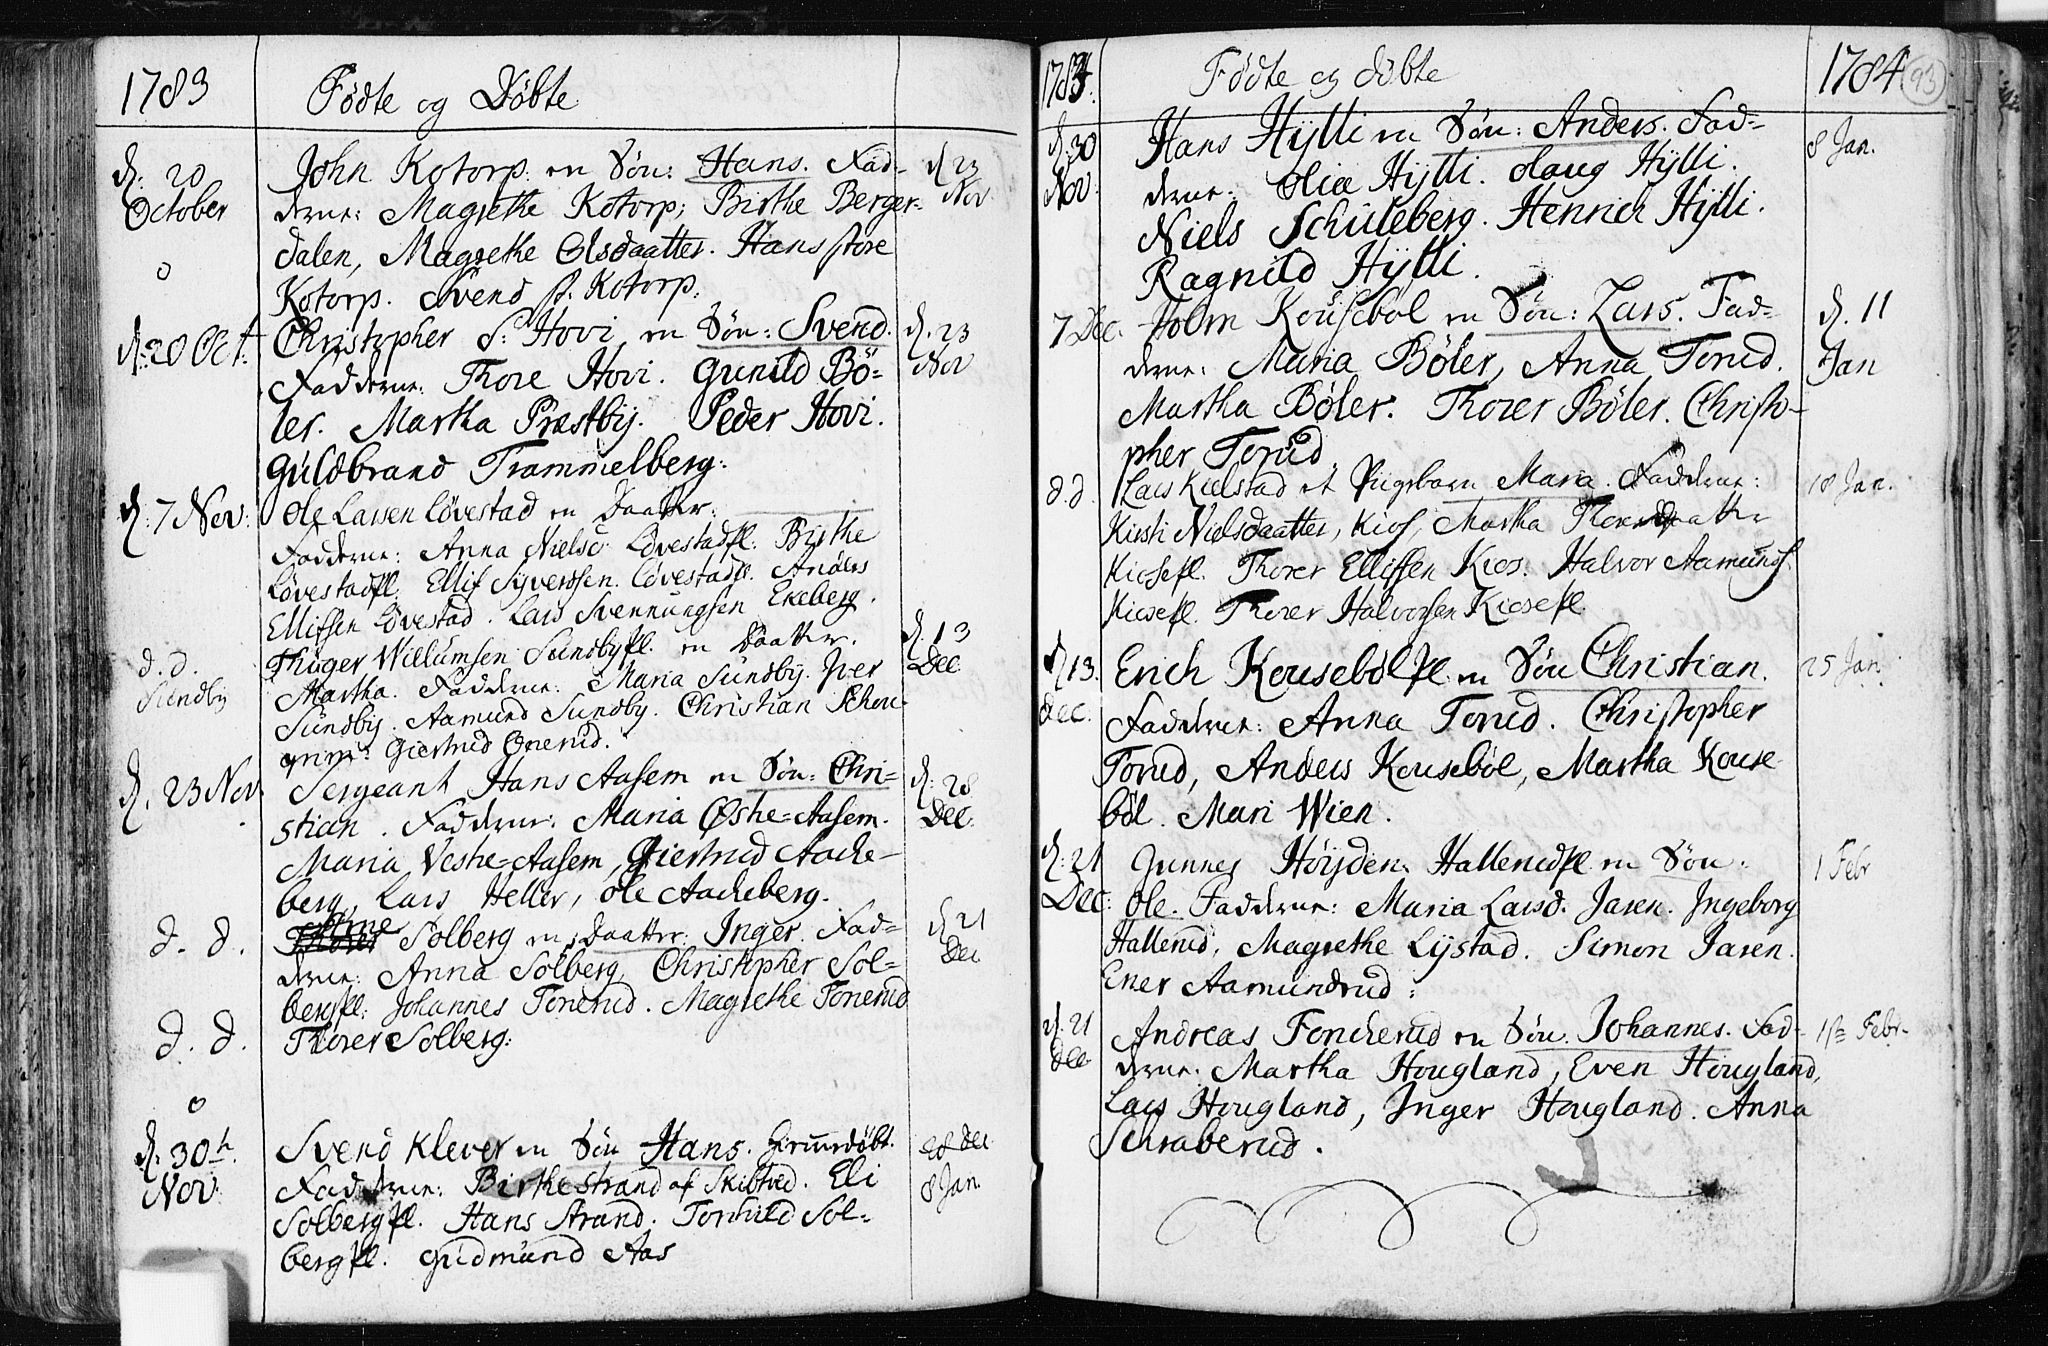 1783
Födte og Döbte
d: 20
October
John Kotorp en Sön: Hans. Fad-
derne: Magrethe Kotorp; Birthe Berger-
dalen, Magrethe Olsdaatter. Hans store
Kotorp. Svend st. Kotorp.
d 23
Nov
d: 20 Oct.
Christopher S: Hovi en Sön: Svend.
Fadderne: Thore Hovi. Gunild Bö-
ler. Martha Præstbÿ. Peder Hovi.
Guldbrand Trammelberg:
d. 23
Nov
d: 7 Nov:
Ole Larsen Lövestad en Daatter:
Fadderne: Anna Nielsd. Lövestadfl. Birthe
Lövestadfl. Ellif Syverdsen. Lövestadfl. Anders
Ellifsen Lövestad. Lars Svennungsen Ekeberg.
d. d.
Sundby
Thuger Willumsen Sundbyfl. en Daatter.
Martha. Fadderne: Maria Sundby. Iver
Sundbÿ. Aamund Sundby. Christian Schou-
grim: Giertrud Onerud.
d. 13
Dec.
d. 23 Nov.
Sergeant Hans Aasem en Sön: Chri-
stian. Fadderne: Maria Østre-Aasem.
Maria Vestre-Aasem, Giertrud Aache-
berg, Lars Heller, Ole Aacheberg.
d: 28
Dec.
d. d.
Arne
Thorer Solberg en Daatter: Inger. Fad-
derne: Anna Solberg, Christopher Sol-
bergfl: Johannes Tonerud. Magrethe Tonerud
Thorer Solberg:
d 21
Dec
d. d.
d. 30th.
Nov.
Svend Klever en Sön Hans. Hiemedöbt.
Fadderne: Birthe Strand af Skibtved. Eli
Solbergfl. Hans Strand. Tornild Sol-
bergfl. Gudmund Aas
28 Dec
8 Jan.
1784.
Födte og döbte
1784
93
d. 30
Nov.
Hans Hÿlli en Sön: Anders. Fad-
derne: Olia Hÿlli. Olaug Hÿlli.
Niels Schulleberg. Henrich Hÿlli.
Ragnild Hÿlli.
8 Jan.
7 Dec.
Holm Kousebol en Sön: Lars. Fad-
derne: Maria Böler, Anna Torud.
Martha Böler. Thorer Böler. Christo-
pher Torud.
d. 11
Jan
d. d.
Lars Kielstad et Pigebarn Maria. Fadderne:
Kirsti Nielsdaatter, Kios, Martha Thoresdaatter
Kiosefl. Thorer Ellifsen Kios. Halvor Aamunds.
Kiosefl. Thorer Halvorsen Kiosefl.
18 Jan.
d 13.
Dec.
Erich Kousebölfl. en Sön Christian.
Fadderne: Anna Torud. Christopher
Torud, Anders Kousebøl, Martha Kouse-
böl. Mari Wien.
25 Jan.
d. 21
Dec:
Gunner Höÿden. Hallerudfl. en Sön:
Ole. Fadderne: Maria Larsd. Jaren. Ingeborg
Hallerud. Magrethe Lÿstad. Simon Jaren.
Ener Aamundrud:
1 Febr
d. 21
Dec
Andreas Foncherud en Sön. Johannes. Fad-
derne: Martha Hougland, Even Hougland,
Lars Hougland, Inger Hougland. Anna
Schraberud.
1ste Febr.